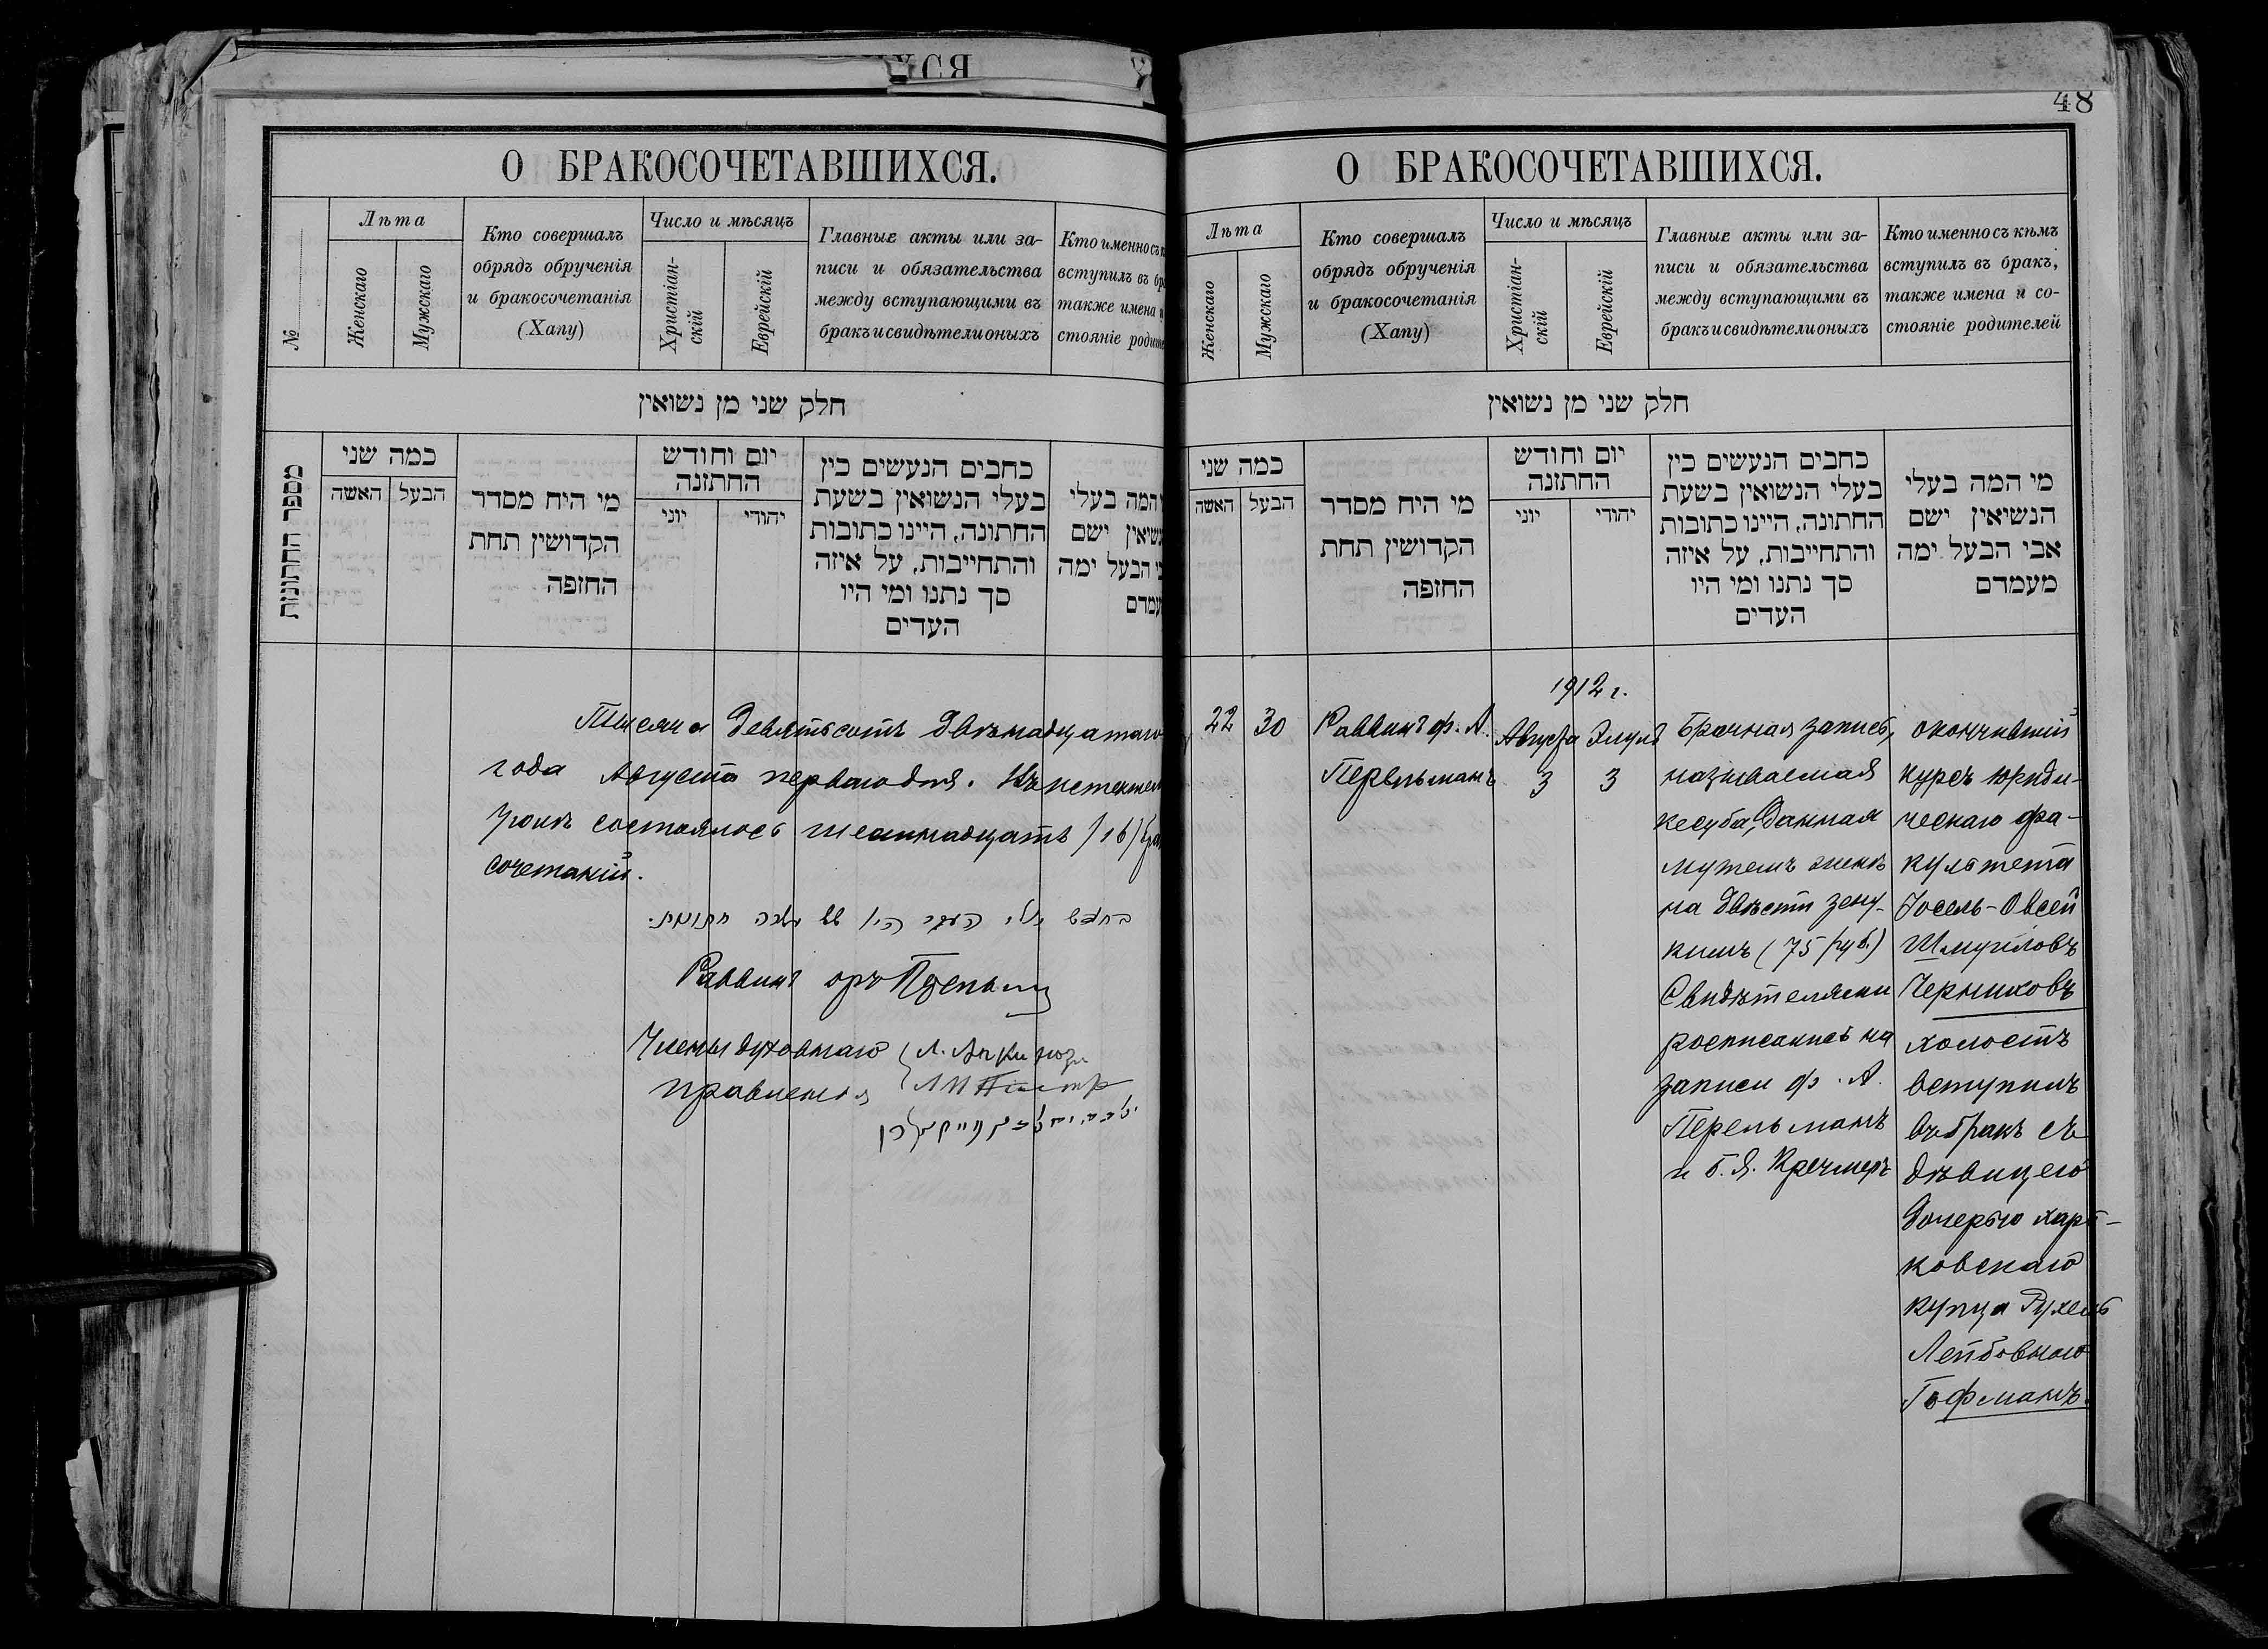 48
О БРАКОСОЧЕТАВШИХСЯ.
№
Лѣта
Женскаго
Мужскаго
Кто совершалъ
обрядъ обрученія
и бракосочетанія
(Хапу)
Число и мѣсяцъ
Христіан-
скій
Еврейскій
Главные акты или за-
писи и обязательства
между вступающими въ
бракъ и свидѣтели оныхъ
Кто именно съ
вступилъ въ
также имена
стояніе
חלק שני מן נשואין
מספר החתונות
כמה שני
האשה
הבעל
מי היח מסדר
הקדושין תחת
החזפה
יום וחודש
החתזנה
יוני
יהודי
כחבים הנעשים כין
בעלי הנשואין בשעת
החתונה, היינו כתובות
והתחייבות, על איזה
סך נתנו ומי היו
העדים
המה בעלי
ישם
הבעל ימה
Тысяча девятьсотъ двѣнадцатаго
года Августа перваго дня. Въ
Іюлѣ состоялось шестнадцать (16)
сочетаній.
Раввинъ
Члены духовнаго
правленія
О БРАКОСОЧЕТАВШИХСЯ.
Лѣта
Женскаго
Мужскаго
Кто совершалъ
обрядъ обрученія
и бракосочетанія
(Хапу)
Число и мѣсяцъ
Христіан-
скій
Еврейскій
Главные акты или за-
писи и обязательства
между вступающими въ
бракъ и свидѣтели оныхъ
Кто именно съ кѣмъ
вступилъ въ бракъ,
также имена и со-
стояніе родителей
חלק שני מן נשואין
כמה שני
האשה
הבעל
מי היח מסדר
הקדושין תחת
החזפה
יום וחודש
החתזנה
יוני
יהודי
כחבים הנעשים כין
בעלי הנשואין בשעת
החתונה, היינו כתובות
והתחייבות, על איזה
סך נתנו ומי היו
העדים
מי המה בעלי
הנשיאין ישם
אבי הבעל ימה
מעמדם
22
30
Раввинъ ф. А.
Перельманъ
1912 г.
Августа
3
Элулъ
3
Брачная запись,
называемая
кесуба, данная
мужемъ женѣ
на двѣсти зеху-
кимъ (75 руб.)
Свидѣтелями
росписались на
записи ф. А.
Перельманъ
и Б. Я. Кречмеръ
окончившій
курсъ юриди-
ческаго фа-
культета
Іосель-Овсей
Шмуйловъ
Черниховъ
холостъ
вступилъ
въ бракъ съ
дѣвицею
дочерью харь-
ковскаго
купца Рухель
Лейбовною
Гофманъ.